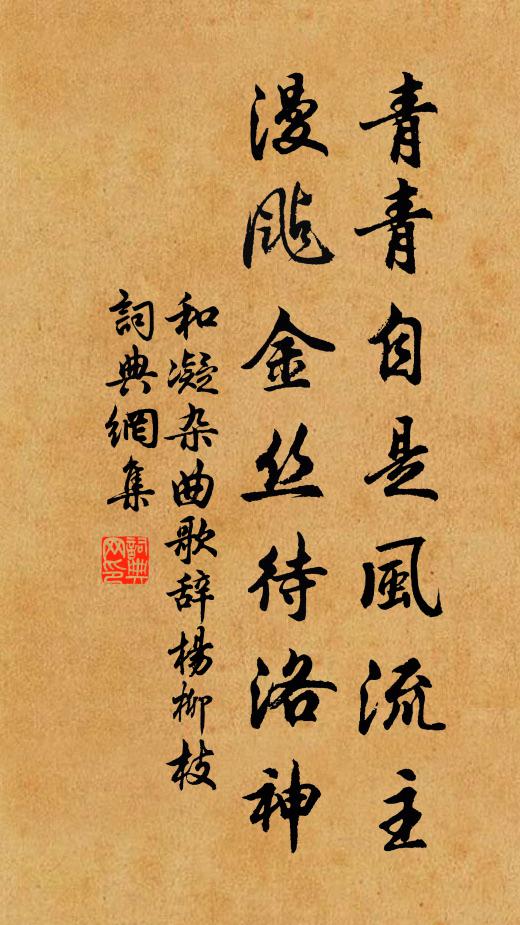 青青自是風流主
漫飐金丝待洛神
和凝杂曲歌辞楊柳枝
詞典網集
詞典
网印